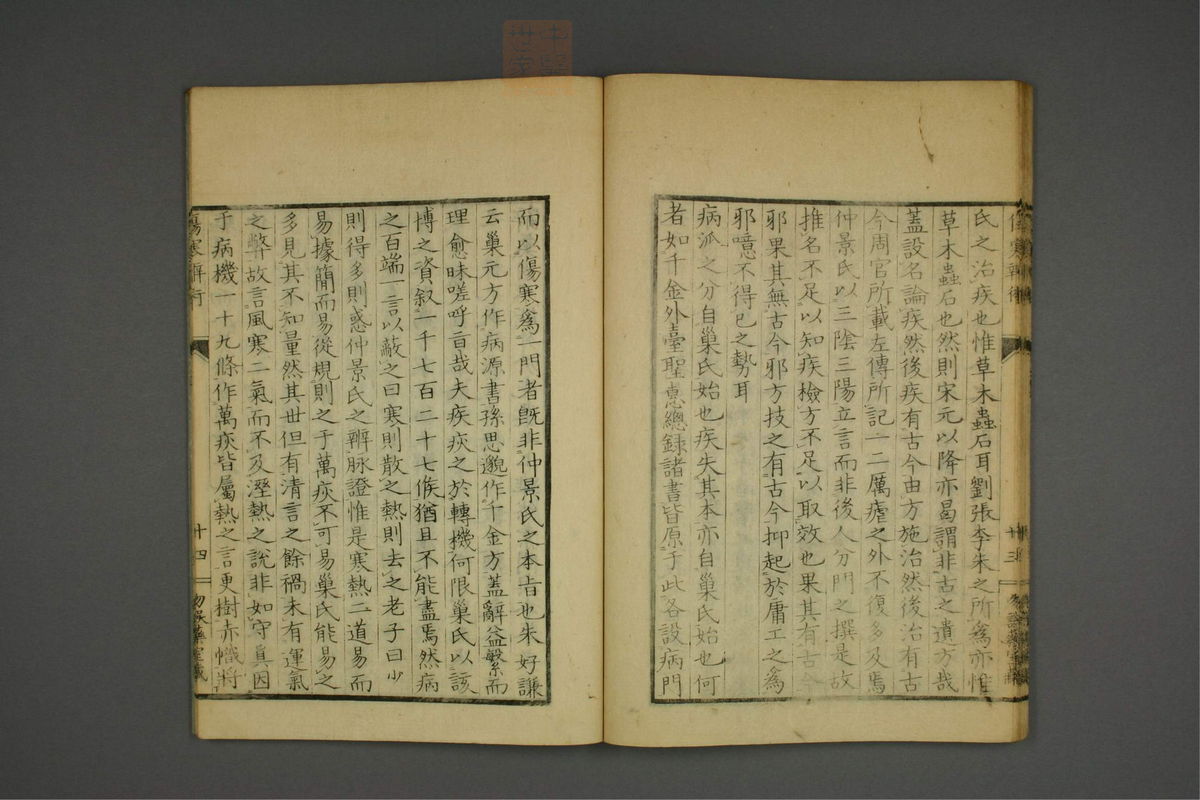 氏之治疾也惟草木蟲石耳劉張李朱之所爲亦惟
草木蟲石也然則宋元以降亦曷謂非古之遺方哉
蓋設名論疾然後疾有古今由方施治然後治有古
今周官所載左傳所記一二厲瘧之外不復多及焉
仲景氏以三陰三陽立言而非後人分門之撰是故
推名不足以知疾檢方不足以取效也果其有古今
邪果其無古今邪方技之有古今抑起於庸工之爲
邪噫不得已之勢耳
病派之分自巢氏始也疾失其本亦自巢氏始也何
者如千金外臺聖惠總錄諸書皆原于此各設病門
十三
而以傷寒爲一門者旣非仲景氏之本旨也朱好謙
云巢元方作病源書孫思邈作千金方蓋辭益繁而
理愈昧嗟呼旨哉夫疾疢之於轉機何限巢氏以該
博之資叙一千七百二十七候猶且不能盡焉然病
之百端一言以蔽之曰寒則散之熱則去之老子曰少
則得多則惑仲景氏之辨脉證惟是寒熱二道易而
易據簡而易從規則之于萬疢不可易巢氏能易之
多見其不知量然其世但有清言之餘禍未有運氣
之弊故言風寒二氣而不及溼熱之說非如守眞因
于病機一十九條作萬疢皆屬熱之言更樹赤幟將
傷寒辨術
十四